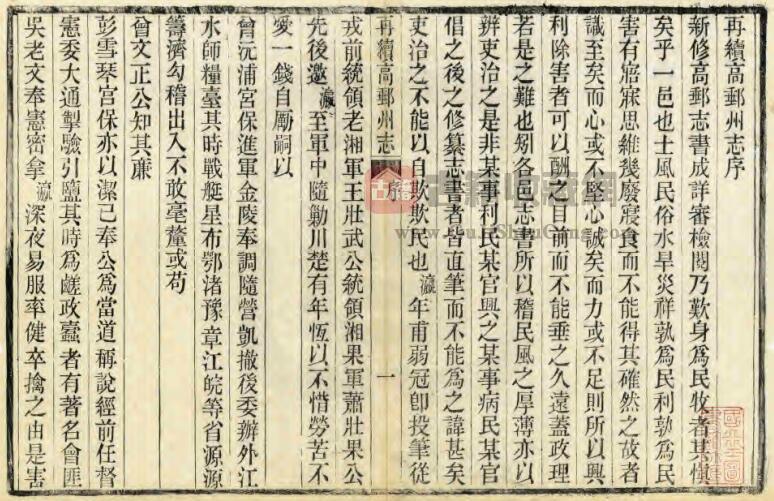 再續高郵州志序
新修高郵州志書成詳審檢閱乃歎身爲民牧者其愼
矣乎一邑也士風民俗水旱災祥孰爲民利孰爲民
害有寤寐思維幾廢寢食而不能得其確然之故者
識至矣而心或不堅心誠矣而力或不足則所以興
利除害者可以酬之目前而不能垂之久遠蓋政理
若是之難也矧各邑志書所以稽民風之厚薄亦以
辨吏治之是非某事利民某官興之某事病民某官
倡之後之修纂志書者皆直筆而不能爲之諱甚矣
吏治之不能以自欺欺民也瀛年甫弱冠卽投筆從
再續高郵州志 序 一
戎前統領老湘軍王壯武公統領湘果軍蕭壯果公
先後邀瀛至軍中隨勦川楚有年恆以不惜勞苦不
愛一錢自勵嗣以
曾沅浦宮保進軍金陵奉調隨營凱撤後委辦外江
水師糧臺其時戰艇星布鄂渚豫章江皖等省源源
籌濟勾稽出入不敢毫釐或苟
曾文正公知其廉
彭雪琴宮保亦以潔己奉公爲當道稱說經前任督
憲委大通掣驗引鹽其時爲鹺政蠹者有著名會匪
吳老文奉憲密拿瀛深夜易服率健卒擒之由是害